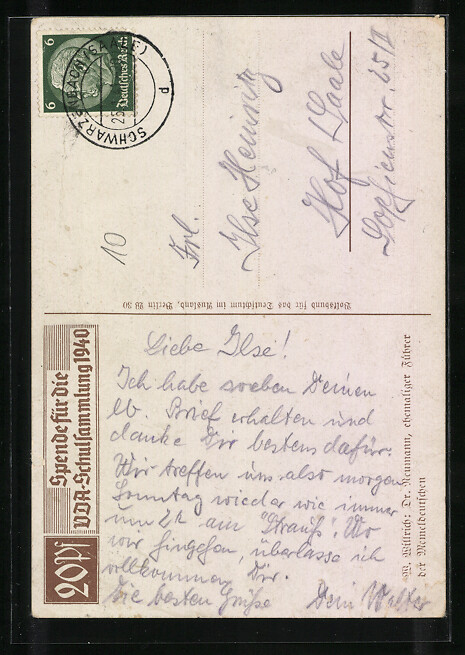 6 6
Deutsches Reich
SCHWARZENBACH (SAALE)
p
10
Frl.
Ilse Heinritz
Hof / Saale
Sophienstr. 25/II
Volksbund für das Deutschtum im Ausland, Berlin W 30
Spende für die
VDA-Schulsammlung 1940
20 Pf
Liebe Ilse!
Ich habe soeben Deinen
lb. Brief erhalten und
danke Dir bestens dafür.
Wir treffen uns also morgen
Sonntag wieder wie immer
um 2h am "Strauß". Wo
wir hingehen, überlasse ich
vollkommen Dir.
Die besten Grüße Dein Walter
W. Willrich: Dr. Neumann, ehemaliger Führer
der Memeldeutschen